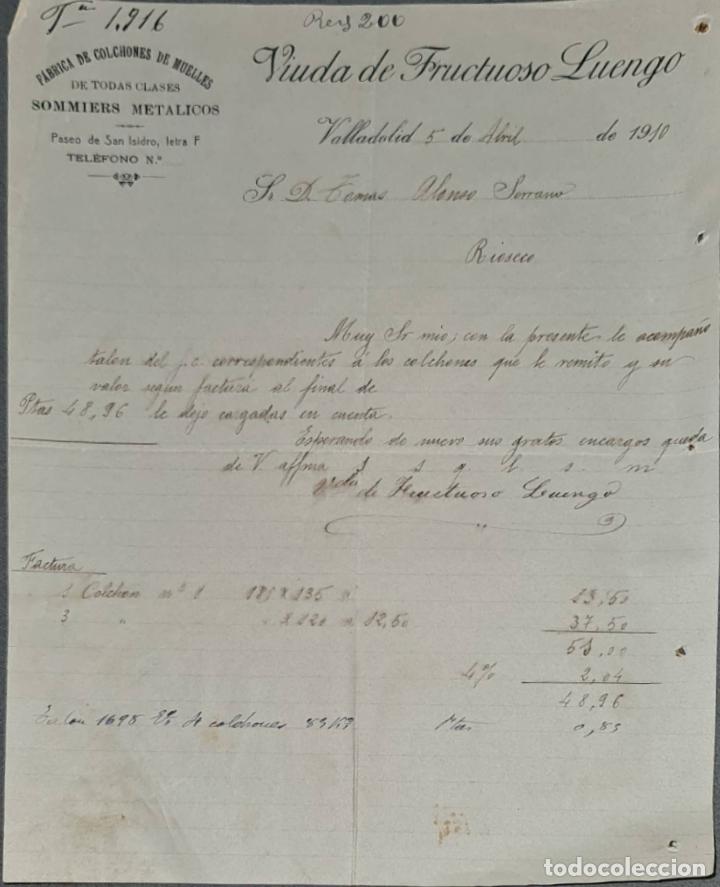 Rers 200
FÁBRICA DE COLCHONES DE MUELLES
DE TODAS CLASES
SOMMIERS METALICOS
Paseo de San Isidro, letra F
TELÉFONO N.º
Viuda de Fructuoso Luengo
Valladolid 5 de Abril de 1910
Sr. D. Tomas Alonso Serrano
Rioseco
Muy Sr mio; con la presente le acompaño
talon del f.c. correspondientes á los colchones que le remito y su
valor segun factura al final de
Ptas 48,96 le dejo cargadas en cuenta.
Esperando de nuevo sus gratos encargos queda
de V. affma s s q b s m
Vda de Fructuoso Luengo
Factura
1 Colchon nº 1 181 X 135 a 13,50
3 " " X 120 a 12,50 37,50
51,00
4% 2,04
48,96
Talon 1698 4 colchones 83 K? 0,83
todocoleccion